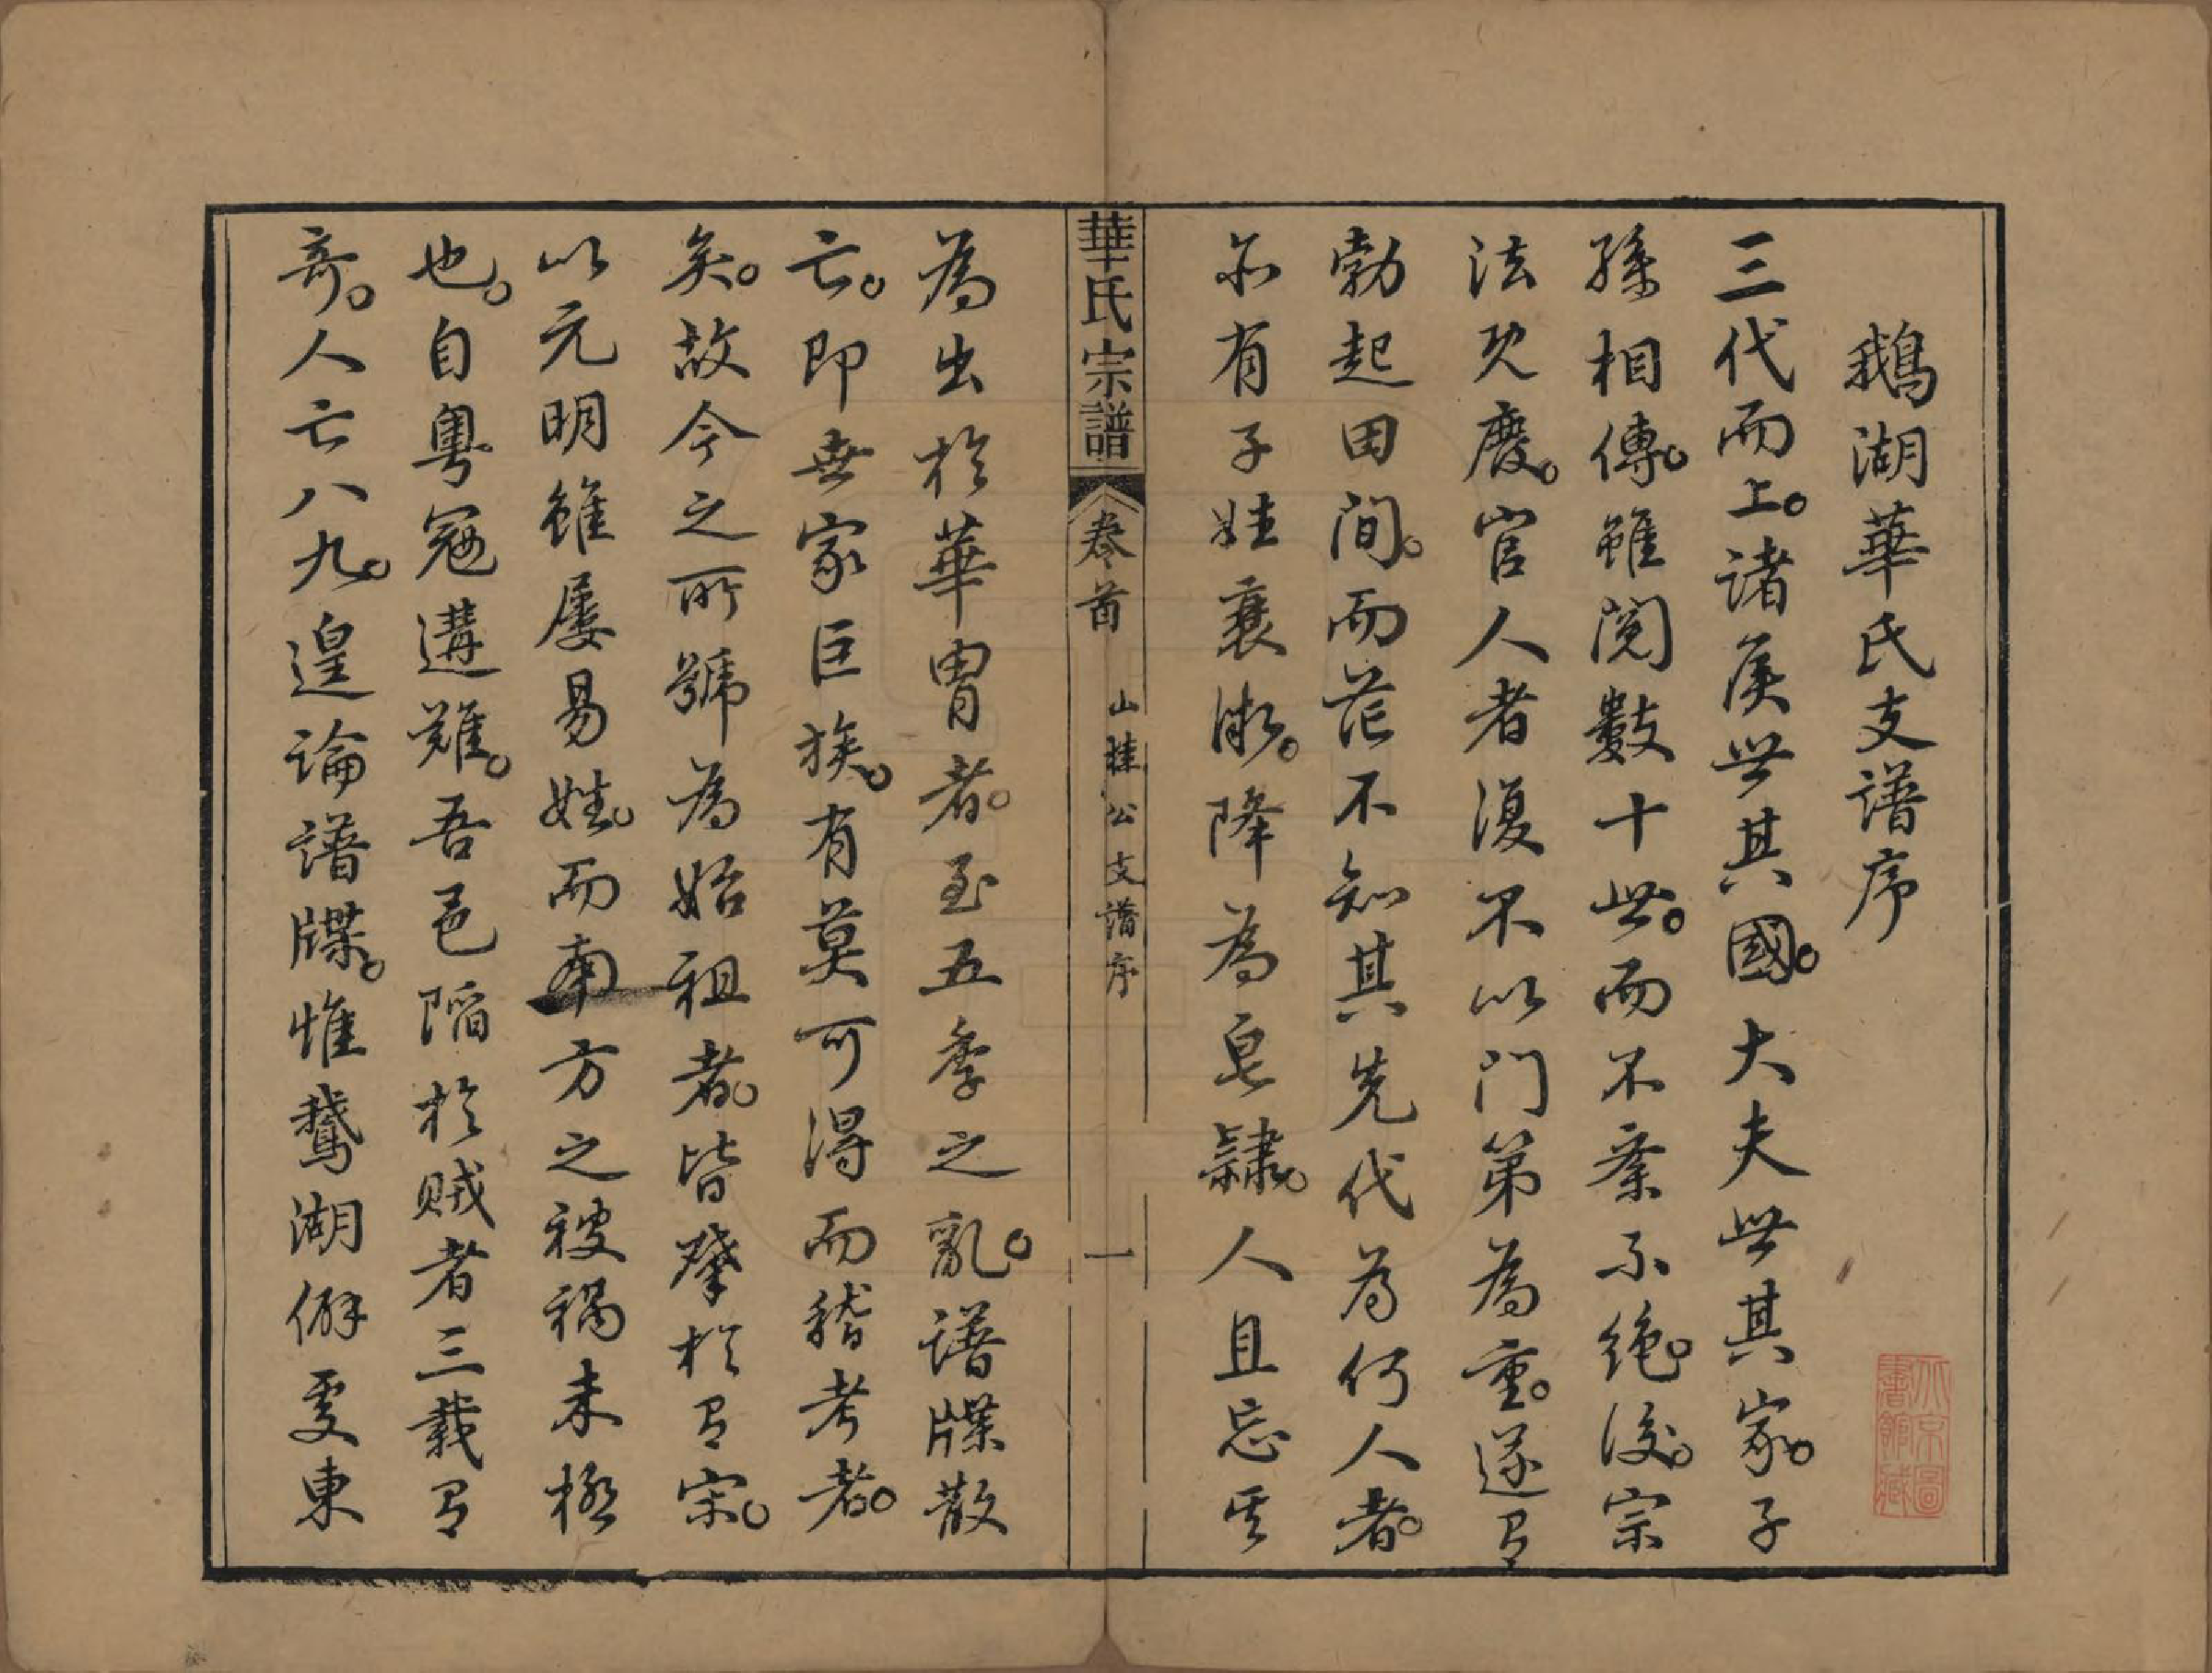 鵝湖華氏支譜序
三代而上。諸侯世其國。大夫世其家。子
孫相傳。雖閱數十世。而不紊不絕。後。宗
法既廢。官人者復不以門第為重。遂有
勃起田間。而茫不知其先代為何人者。
亦有子姓衰微。降為皂隸。人且忘其
華氏宗譜 卷首 山桂公支譜序 一
為出於華冑者。至五季之亂。譜牒散
亡。即世家巨族。有莫可得而稽考者。
矣。故今之所號為始祖者。皆肇於有宋。
以元明雖屢易姓。而南方之被禍未極
也。自粵寇遘難。吾邑陷於賊者三載有
奇。人亡八九。遑論譜牒。惟鵞湖僻處東
北京圖書館藏